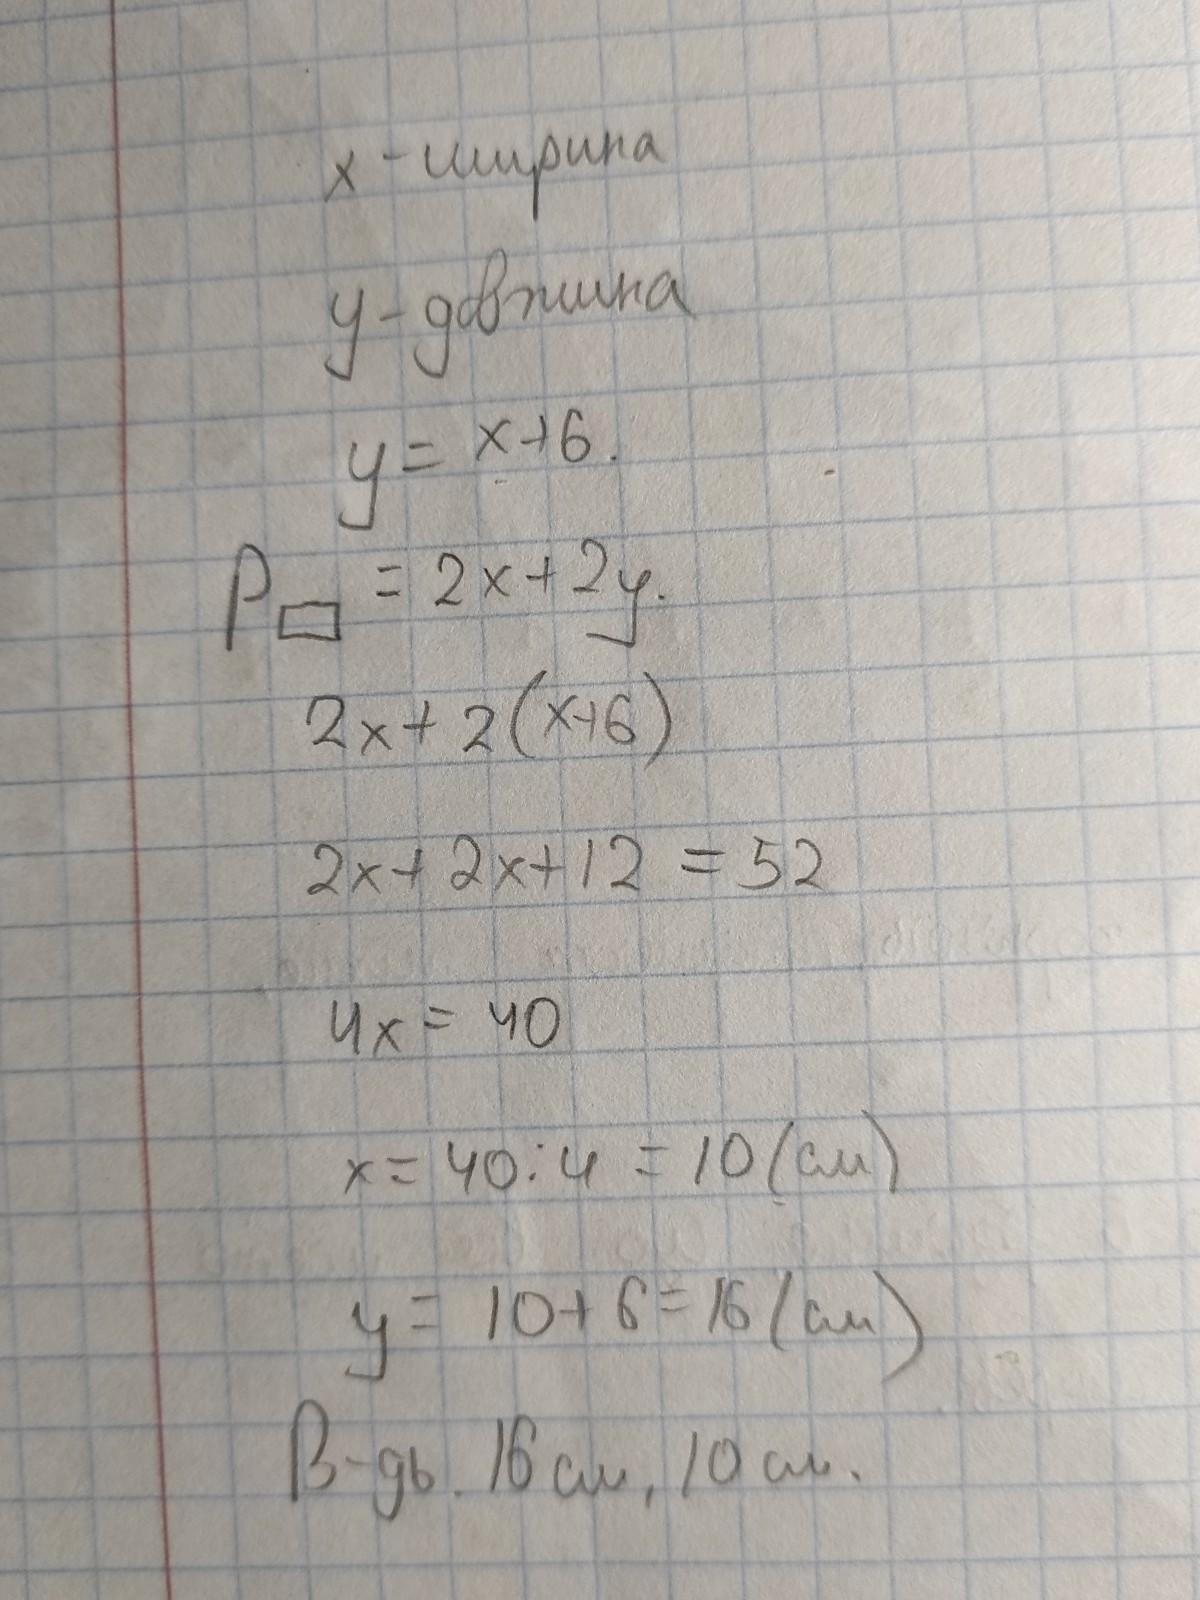 x - ширина
y - довжина
y = x+6.
P▭ = 2x+2y.
2x+2(x+6)
2x+2x+12 = 52
4x = 40
x = 40:4 = 10 (см)
y = 10+6=16 (см)
В-дь. 16 см, 10 см.